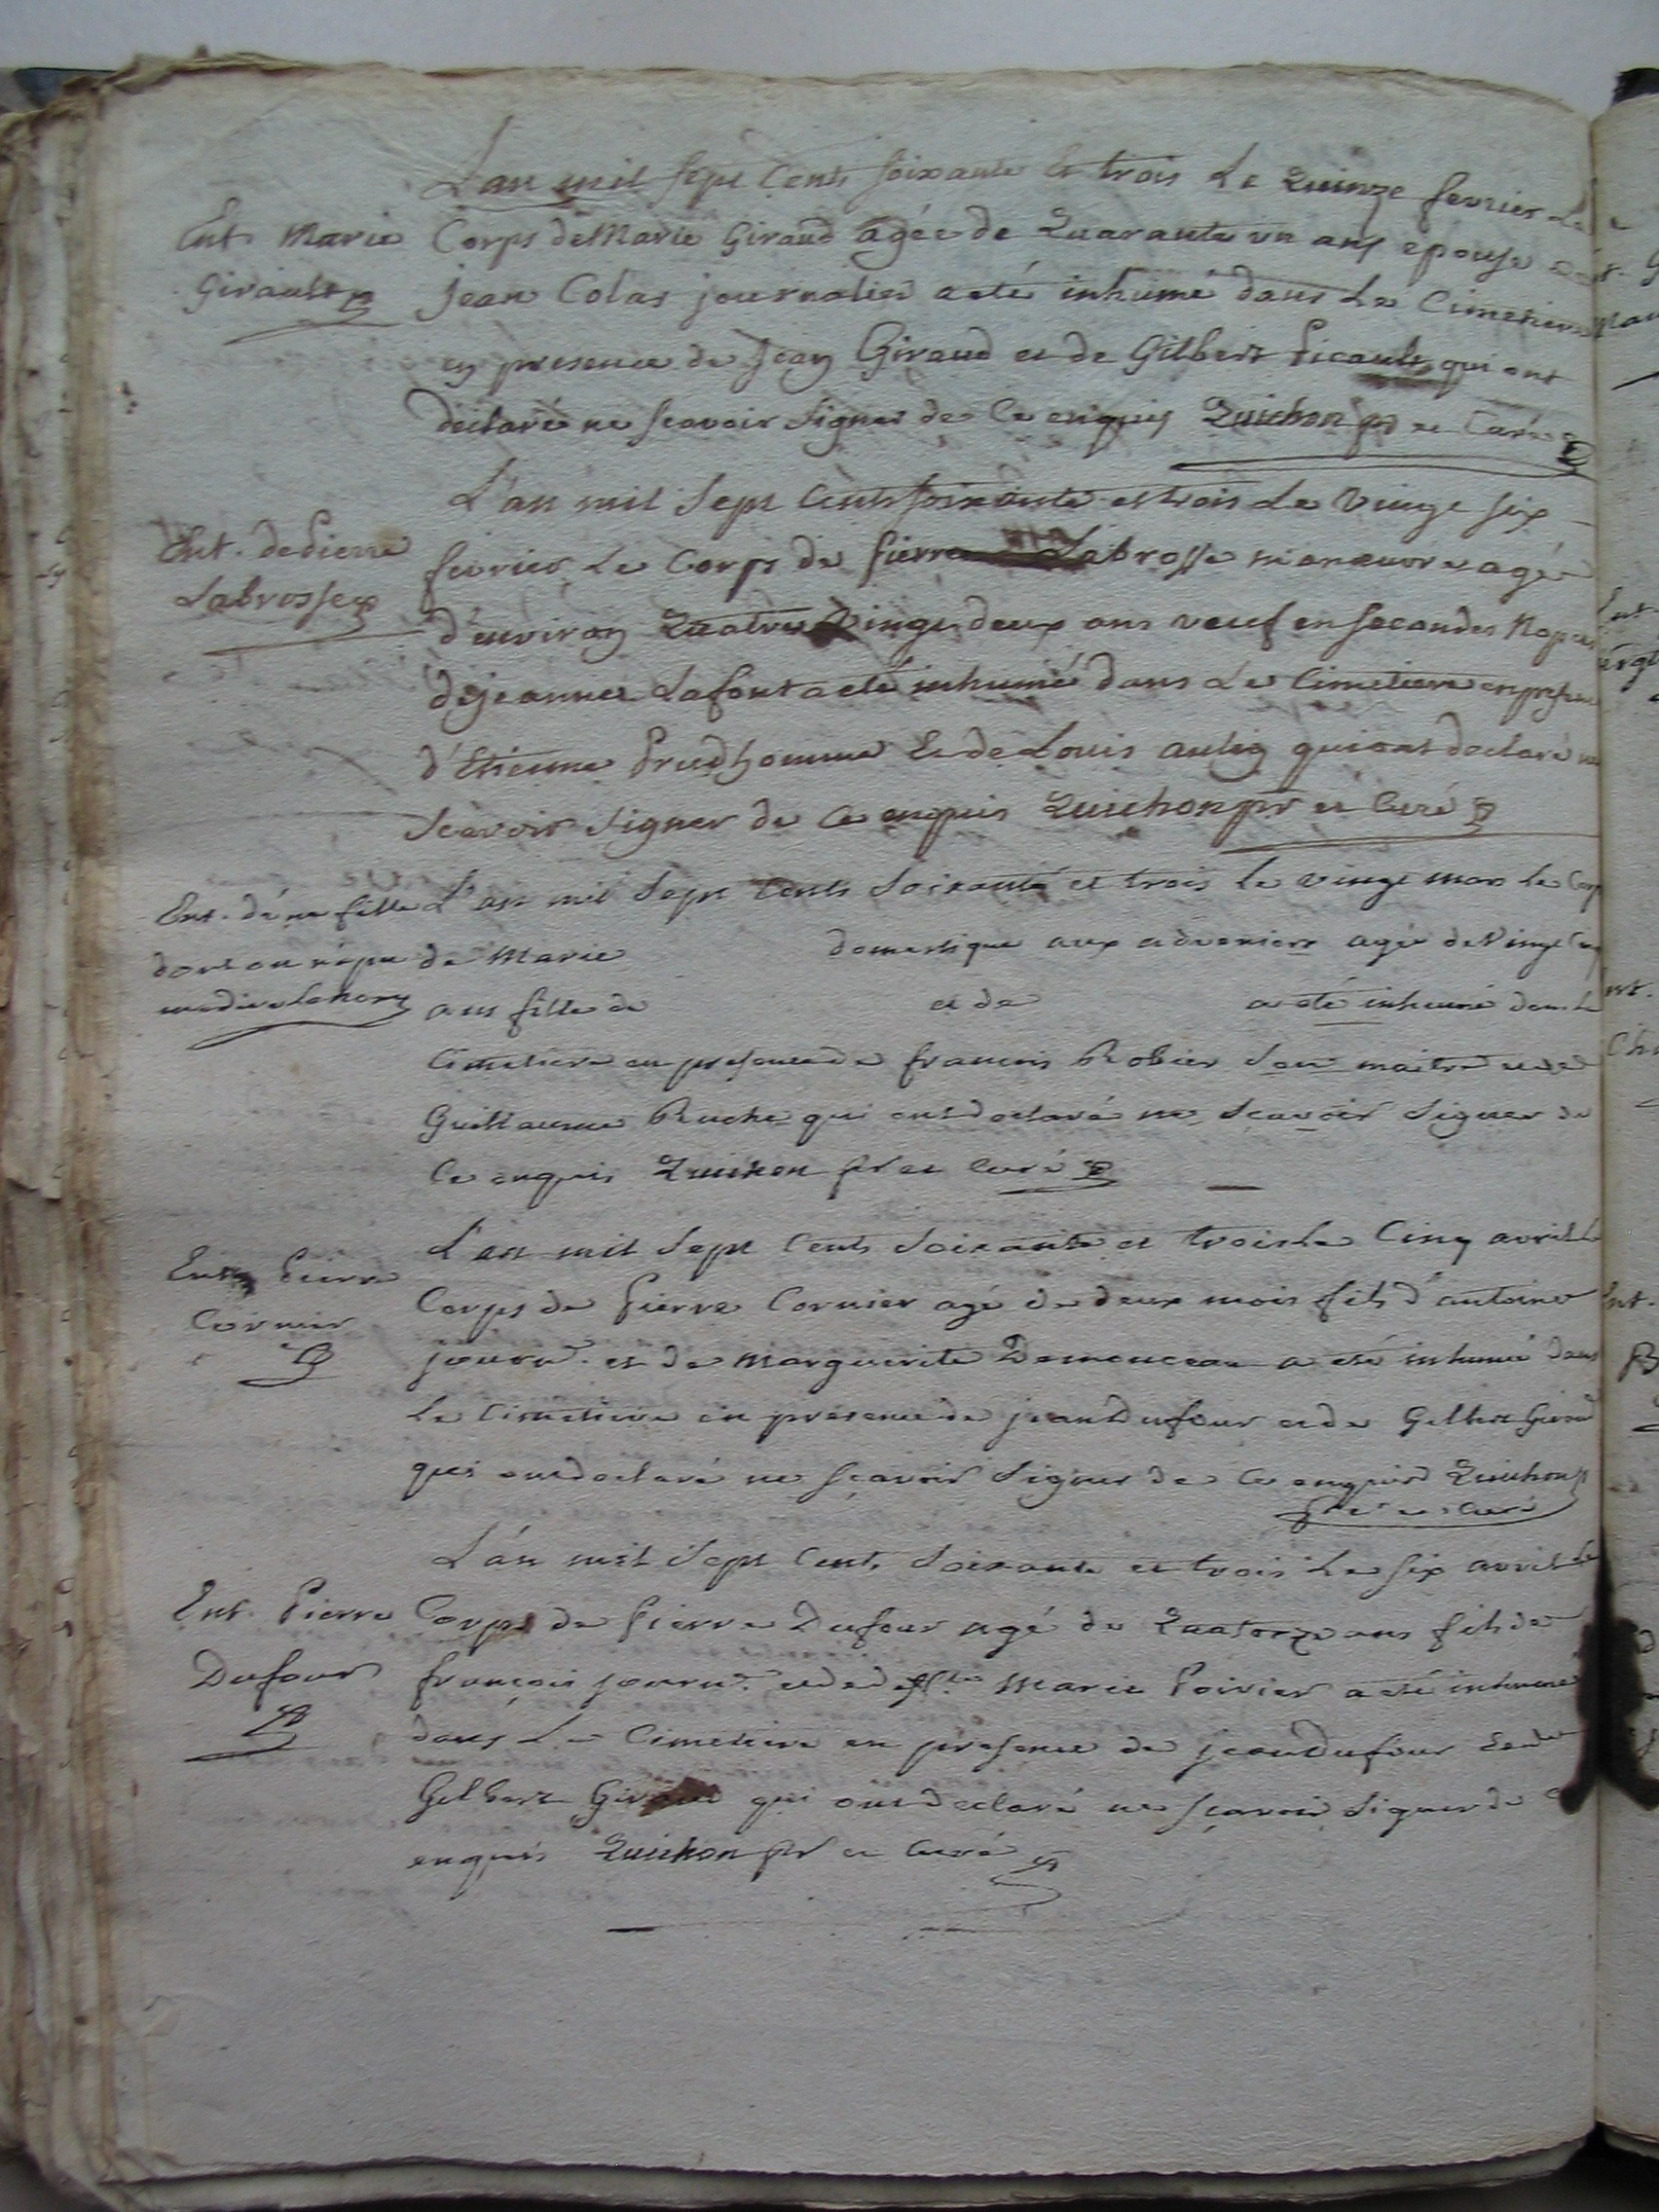 L'an mil sept Cents soixante et trois Le Quinze fevrier Le
Ent. Marie
Girault
Corps de Marie Giraud agée de Quarante un ans epouse de
jean Colas journalier a eté inhumé dans Le Cimetiere
en presence de jean Giraud et de Gilbert Picault qui ont
déclaré ne scavoir signer de Ce enquis Quichon pr et Curé
L'an mil sept Cents soixante et trois Le vingt six
Ent. de Pierre
Labrosse
fevrier Le Corps de Pierre Labrosse manœuvre agé
d'environ Quatre vingt deux ans veuf en secondes Noces
de jeanne Lafont a eté inhumé dans Le Cimetiere en presence
d'Etienne Prudhomme Et de Louis aulin qui ont declaré ne
scavoir signer de Ce enquis Quichon pr et Curé
Ent. d'une fille
dont on n'a pu
me dire le nom
L'an mil sept Cents soixante et trois le vingt mars le Corps
de Marie domestique aux agée de vingt Cinq
ans fille de et de a eté inhumé dans Le
Cimetiere en presence de francois Robier son maitre et de
Guillaume Ruche qui ont declaré ne scavoir signer de
Ce enquis Quichon pr et Curé
L'an mil sept Cents soixante et trois Le Cinq avril Le
Ent. Pierre
Cornier
Corps de Pierre Cornier agé de deux mois fils d'antoine
journ. et de Marguerite Demonceau a eté inhumé dans
Le Cimetiere en presence de jean Dufour et de Gilbert Giraud
qui ont declaré ne sçavoir signer de Ce enquis Quichon
ptre et Curé
L'an mil sept Cents soixante et trois Le six avril Le
Ent. Pierre
Dufour
Corps de Pierre Dufour agé de Quatorze ans fils de
françois journ. et de Marie Poirier a eté inhumé
dans Le Cimetiere en presence de jean Dufour et de
Gilbert Giraud qui ont declaré ne sçavoir signer de Ce
enquis Quichon pr et Curé